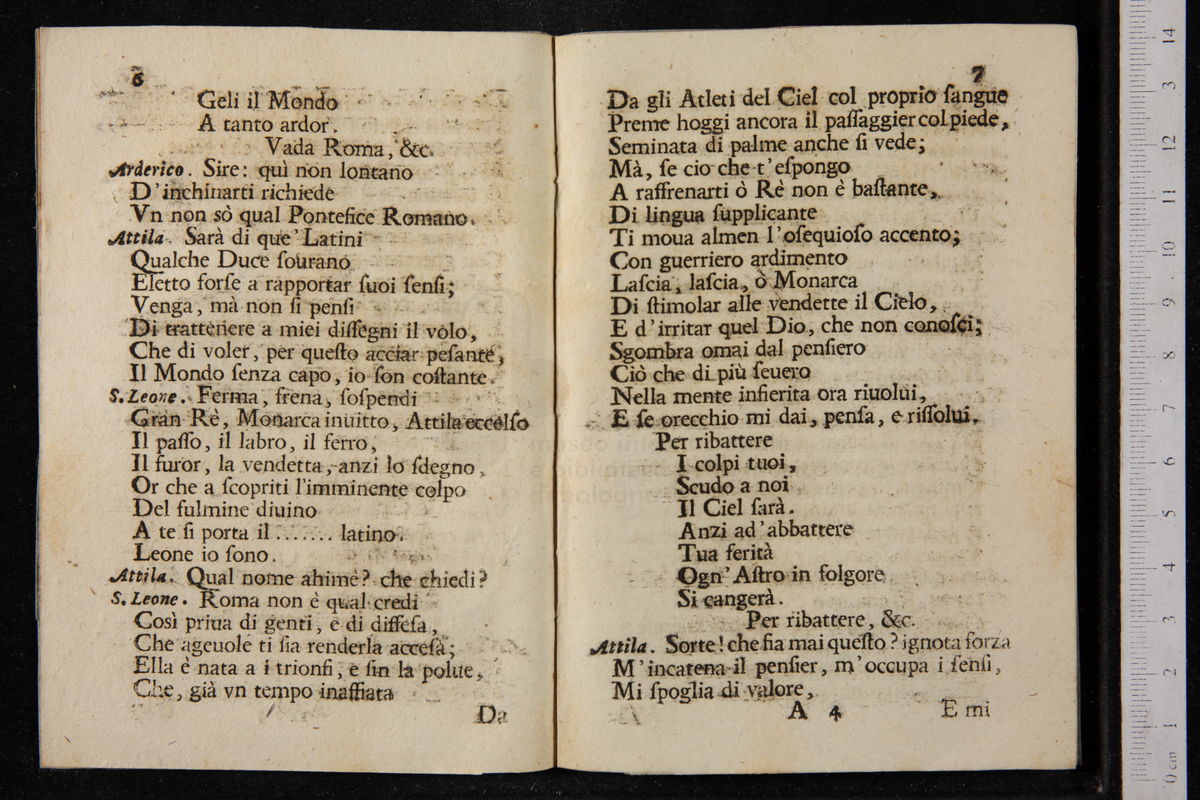 6
Geli il Mondo
A tanto ardor.
Vada Roma, &c.
Arderico. Sire: quì non lontano
D'inchinarti richiede
Vn non sò qual Pontefice Romano.
Attila. Sarà di que' Latini
Qualche Duce ſourano
Eletto forſe a rapportar ſuoi ſenſi;
Venga, mà non ſi penſi
Di trattenere a miei diſſegni il volo,
Che di voler, per queſto acciar peſante,
Il Mondo ſenza capo, io ſon coſtante.
S. Leone. Ferma, frena, ſoſpendi
Gran Rè, Monarca inuitto, Attila eccelſo
Il paſſo, il labro, il ferro,
Il furor, la vendetta, anzi lo ſdegno,
Or che a ſcopriti l'imminente colpo
Del fulmine diuino
A te ſi porta il ....... latino.
Leone io ſono.
Attila. Qual nome ahimè? che chiedi?
S. Leone. Roma non è qual credi
Così priua di genti, e di diffeſa,
Che ageuole ti ſia renderla acceſa;
Ella è nata a i trionfi, e ſin la polue,
Che, già vn tempo inaffiata
Da
7
Da gli Atleti del Ciel col proprio ſangue
Preme hoggi ancora il paſſaggier col piede,
Seminata di palme anche ſi vede;
Mà, ſe cio che t'eſpongo
A raffrenarti ò Rè non è baſtante,
Di lingua ſupplicante
Ti moua almen l'oſequioſo accento;
Con guerriero ardimento
Laſcia, laſcia, ò Monarca
Di ſtimolar alle vendette il Cielo,
E d'irritar quel Dio, che non conoſci;
Sgombra omai dal penſiero
Ciò che di più ſeuero
Nella mente infierita ora riuolui,
E ſe orecchio mi dai, penſa, e riſſolui.
Per ribattere
I colpi tuoi,
Scudo a noi
Il Ciel ſarà.
Anzi ad'abbattere
Tua ferità
Ogn'Aſtro in folgore
Si cangerà.
Per ribattere, &c.
Attila. Sorte! che fia mai queſto? ignota forza
M'incatena il penſier, m'occupa i ſenſi,
Mi ſpoglia di valore,
A 4
E mi